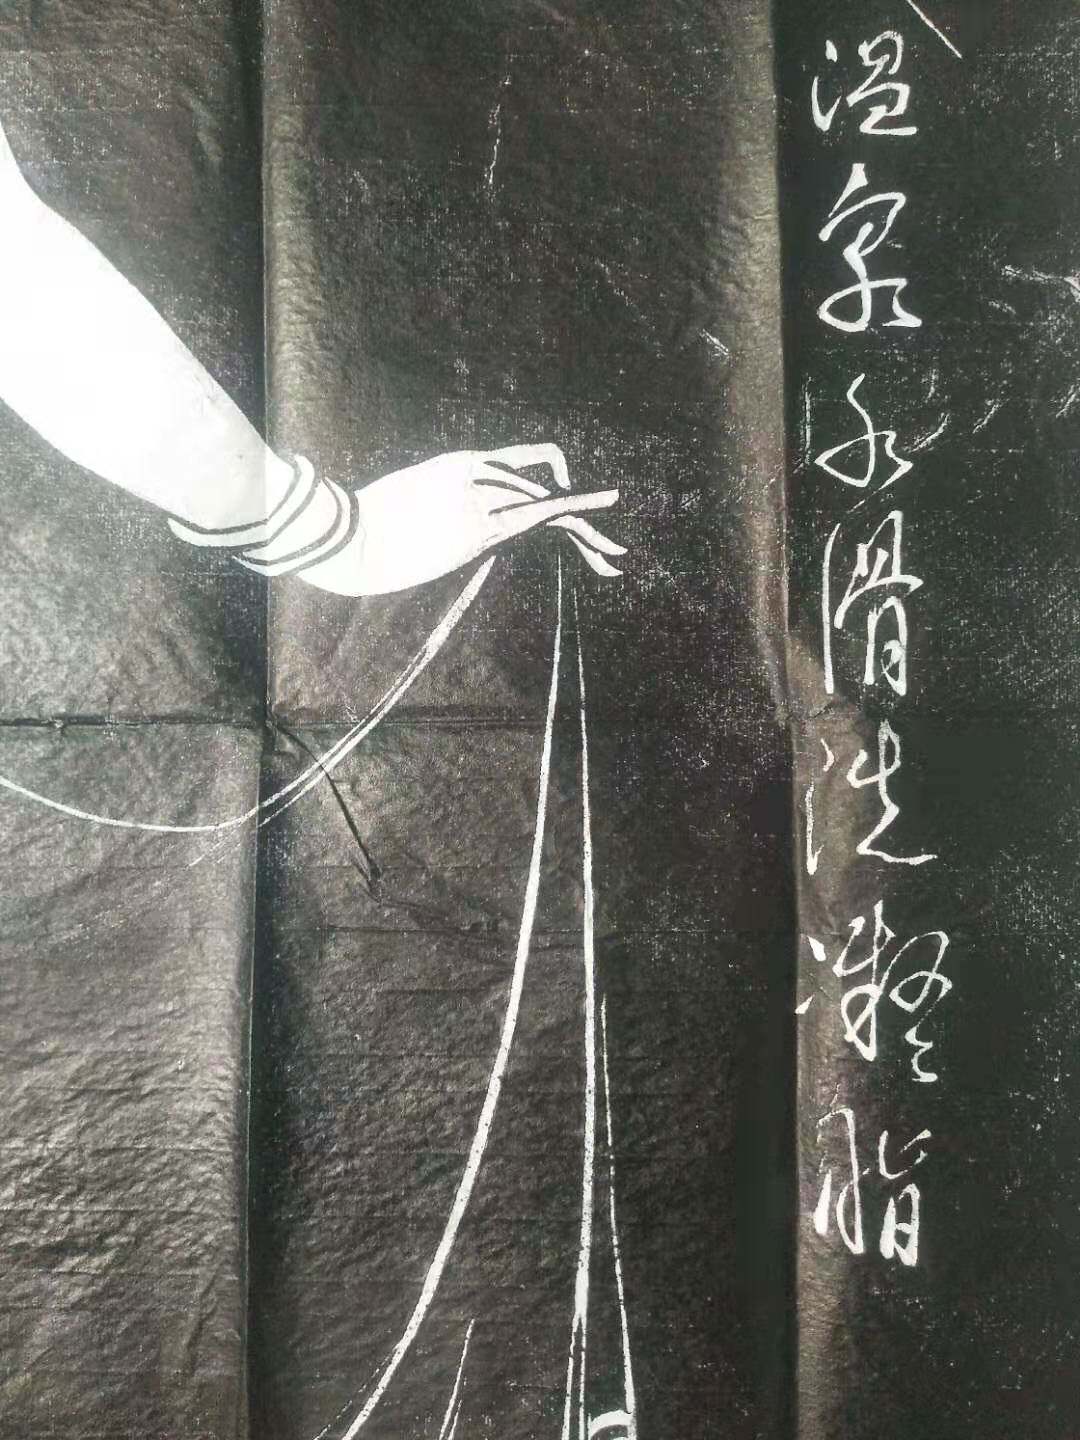 温泉水滑洗凝脂